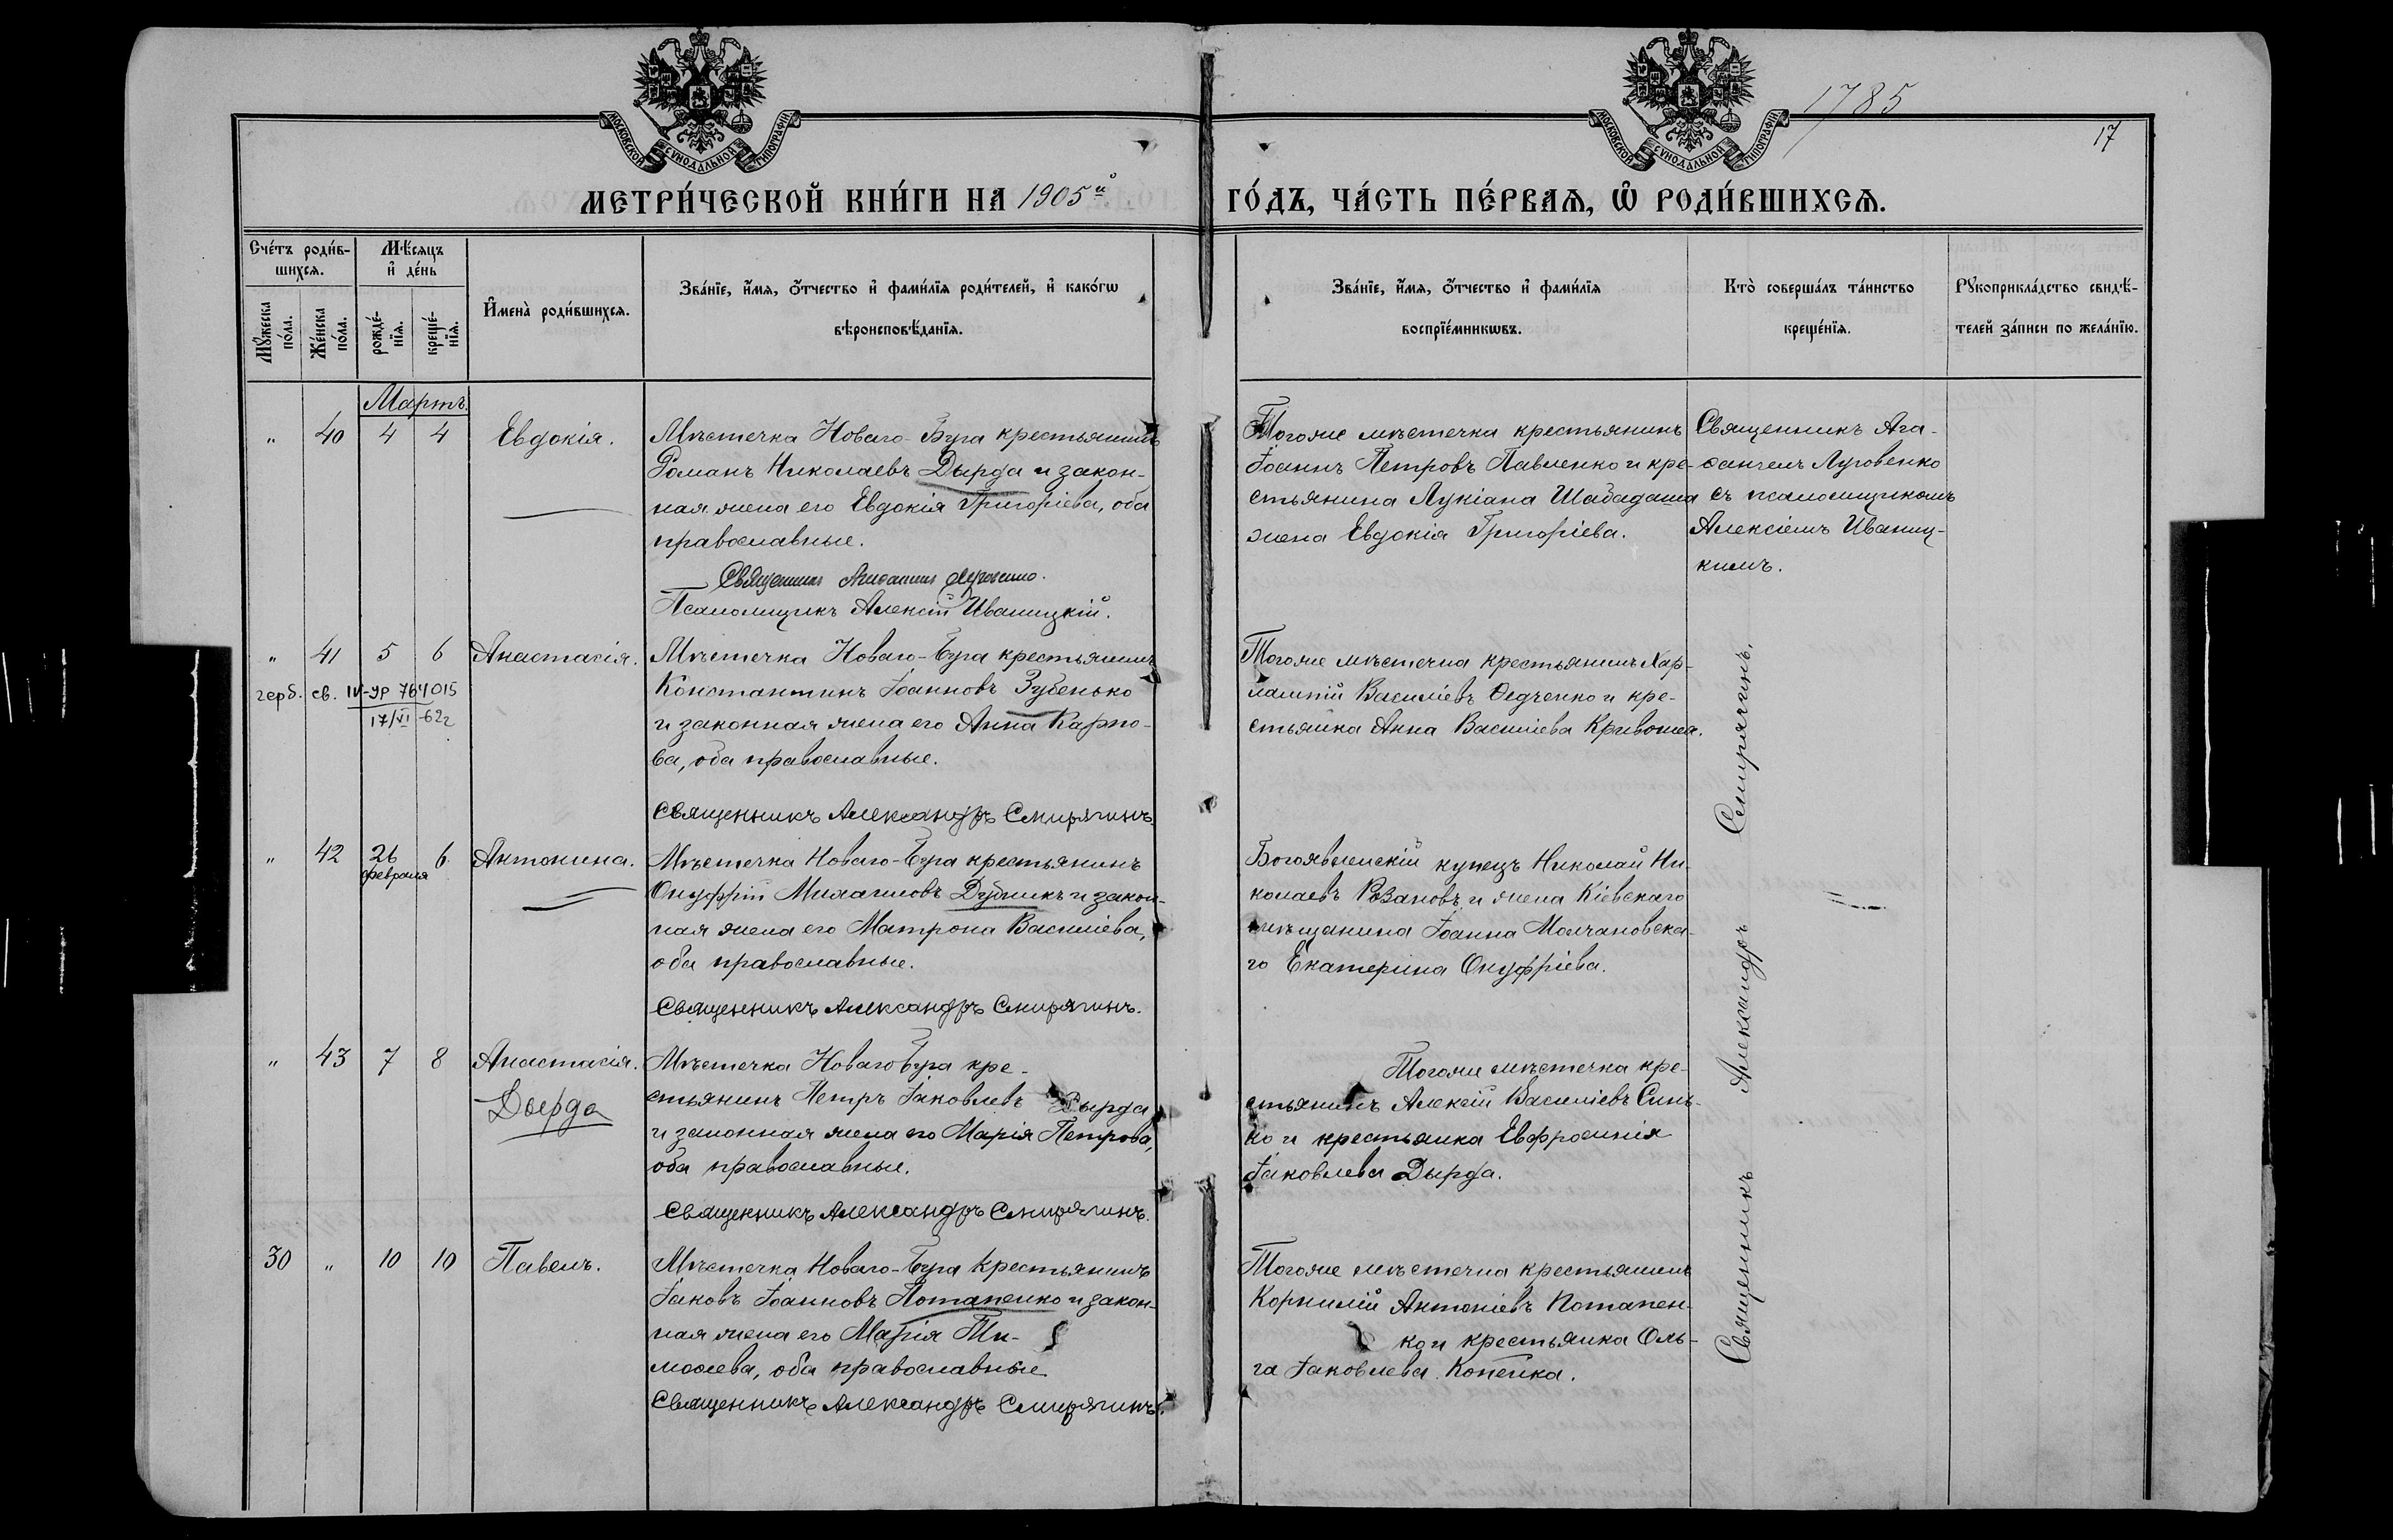 МОСКОВСКОЙ СУНОДАЛЬНОЙ ТИПОГРАФІИ
МОСКОВСКОЙ СУНОДАЛЬНОЙ ТИПОГРАФІИ
1785
17
МЕТРИ́ЧЕСКОЙ КНИ́ГИ НА 1905й
ГО́ДЪ, ЧА́СТЬ ПЕ́РВАѦ, Ѽ РОДИ́ВШИХСѦ.
Сче́тъ роди́в-
шихсѧ.
Мѣ́сѧцъ
и҆ де́нь
Мꙋ́жеска
по́ла.
Же́нска
по́ла.
рожде́-
нїѧ.
креще́-
нїѧ.
И҆мена̀ роди́вшихсѧ.
Зва́нїе, и҆́мѧ, ѻ҆́тчество и҆ фами́лїѧ роди́телей, и҆ како́гѡ
вѣроисповѣ́данїѧ.
Зва́нїе, и҆́мѧ, ѻ҆́тчество и҆ фами́лїѧ
воспрїе́мникѡвъ.
Кто̀ соверша́лъ та́инство
креще́нїѧ.
Рꙋкоприкла́дство свидѣ́-
телей за́писи по жела́нїю.
Мартъ.
" 40 4 4 Евдокія.
Мѣстечка Новаго-Буга крестьянинъ
Романъ Николаевъ Дырда и закон-
ная жена его Евдокія Григоріева, оба
православные.
Священникъ Агафангелъ Луговенко.
Псаломщикъ Алексій Иваницкій.
Тогоже мѣстечка крестьянинъ
Іоаннъ Петровъ Павленко и кре-
стьянина Лукіана Шабадаша
жена Евдокія Григоріева.
Священникъ Ага-
ѳангелъ Луговенко
съ псаломщикомъ
Алексіемъ Иваниц-
кимъ.
" 41 5 6 Анастасія.
герб. св. IV-УР 764015
17/VI-62г
Мѣстечка Новаго-Буга крестьянинъ
Константинъ Іоанновъ Зубенько
и законная жена его Анна Карпо-
ва, оба православные.
Священникъ Александръ Смирягинъ.
Тогоже мѣстечка крестьянинъ Хар-
лампій Василіевъ Ѳедченко и кре-
стьянка Анна Василіева Кривошея.
" 42 26 февраля 6 Антонина.
Мѣстечка Новаго-Буга крестьянинъ
Онуфрій Михаиловъ Дубчикъ и закон-
ная жена его Матрона Василіева,
оба православные.
Священникъ Александръ Смирягинъ.
Богоявленскій купецъ Николай Ни-
колаевъ Розановъ и жена Кіевскаго
мѣщанина Іоанна Молчановска-
го Екатерина Онуфріева.
" 43 7 8 Анастасія.
Дырда
Мѣстечка Новаго Буга кре-
стьянинъ Петръ Іаковлевъ Дырда
и законная жена его Марія Петрова,
оба православные.
Священникъ Александръ Смирягинъ.
Тогоже мѣстечка кре-
стьянинъ Алексій Василіевъ Синь-
ко и крестьянка Евфросинія
Іаковлева Дырда.
30 " 10 10 Павелъ.
Мѣстечка Новаго-Буга крестьянинъ
Іаковъ Іоанновъ Потапенко и закон-
ная жена его Марія Ти-
моѳеева, оба православные
Священникъ Александръ Смирягинъ.
Тогоже мѣстечка крестьянинъ
Корнилій Антоніевъ Потапен-
ко и крестьянка Оль-
га Іаковлева Копейка.
Священникъ Александръ Смирягинъ.